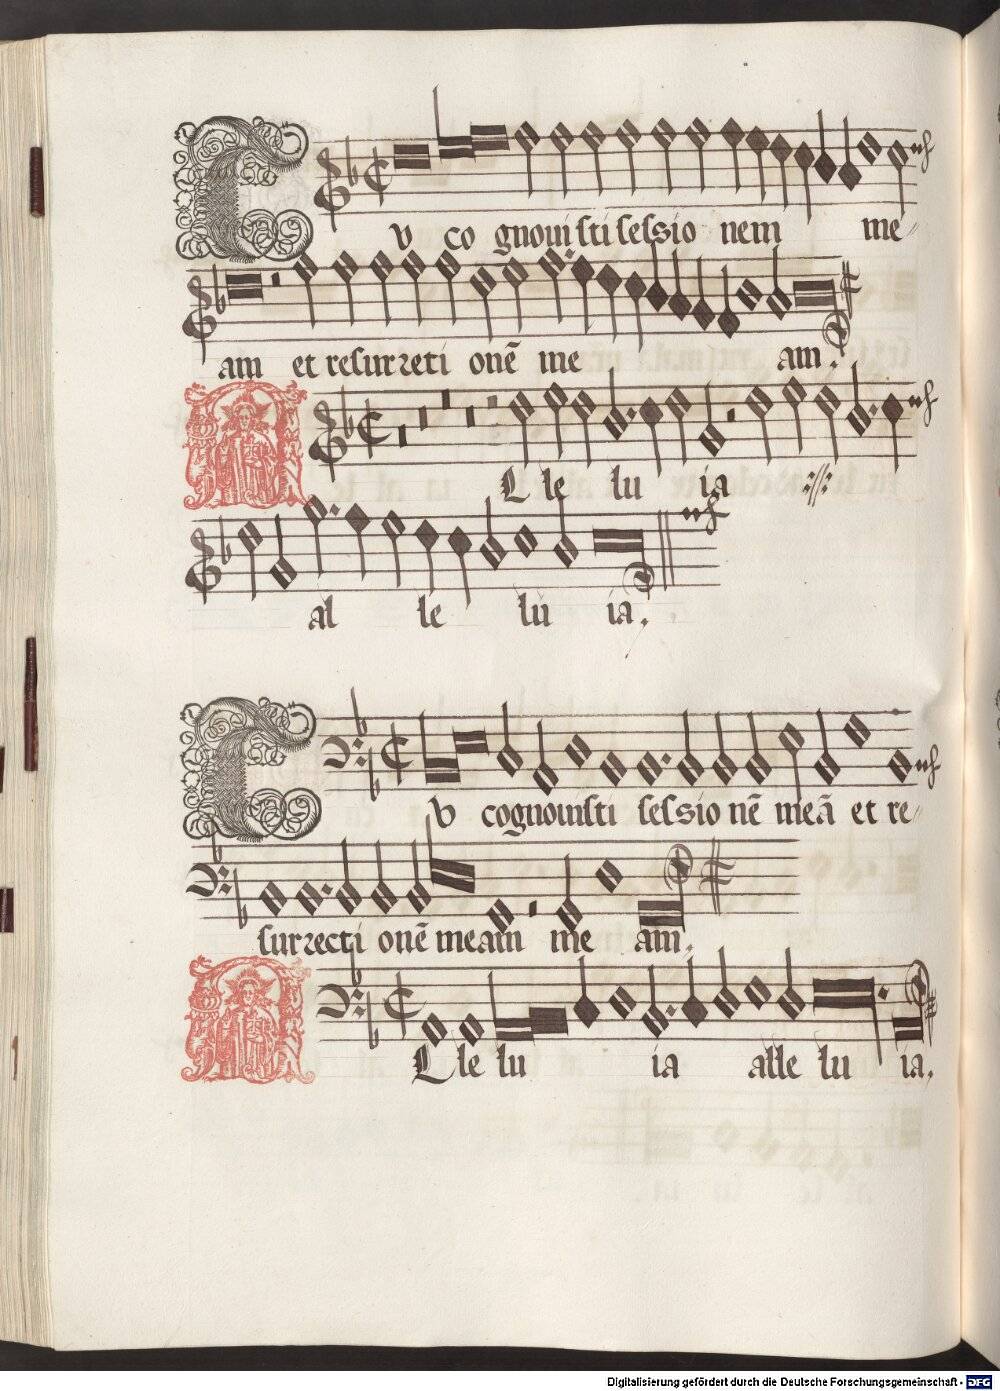 Tu co gnouisti sessio nem me
am et resurrecti onē me am.
Alle lu ia
al le lu ia.
Tu cognouisti sessio nē meā et re
surrecti onē meam me am.
Alle lu ia alle lu ia.
Digitalisierung gefördert durch die Deutsche Forschungsgemeinschaft - DFG